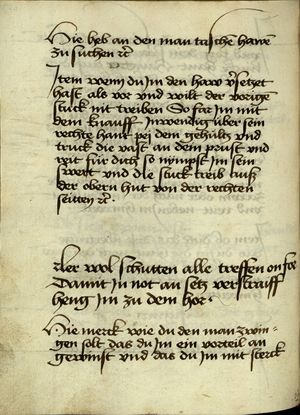 Hie heb an den man tasche hawe
zu suchen etc
Item wenn du Im den haw v̄setzet
hast als vor vnd wilt der vorige
stuck nit treiben So far Im mit
dem knauff Inwendig uber sein
rechte hant pej dem gehültz vnd
truck die vast an dein prust vnd
reit für dich so nympst Im sein
swert vnd die stuck treib auß
der obern hut von der rechten
seitten etc
Der wol schutten alle treffen on
Damit in not an setz
heng Im zu dem hor
Hie merck wie du den man zwin
gen solt das du Im ein vorteil an
gewinst vnd das du Im mit sterck